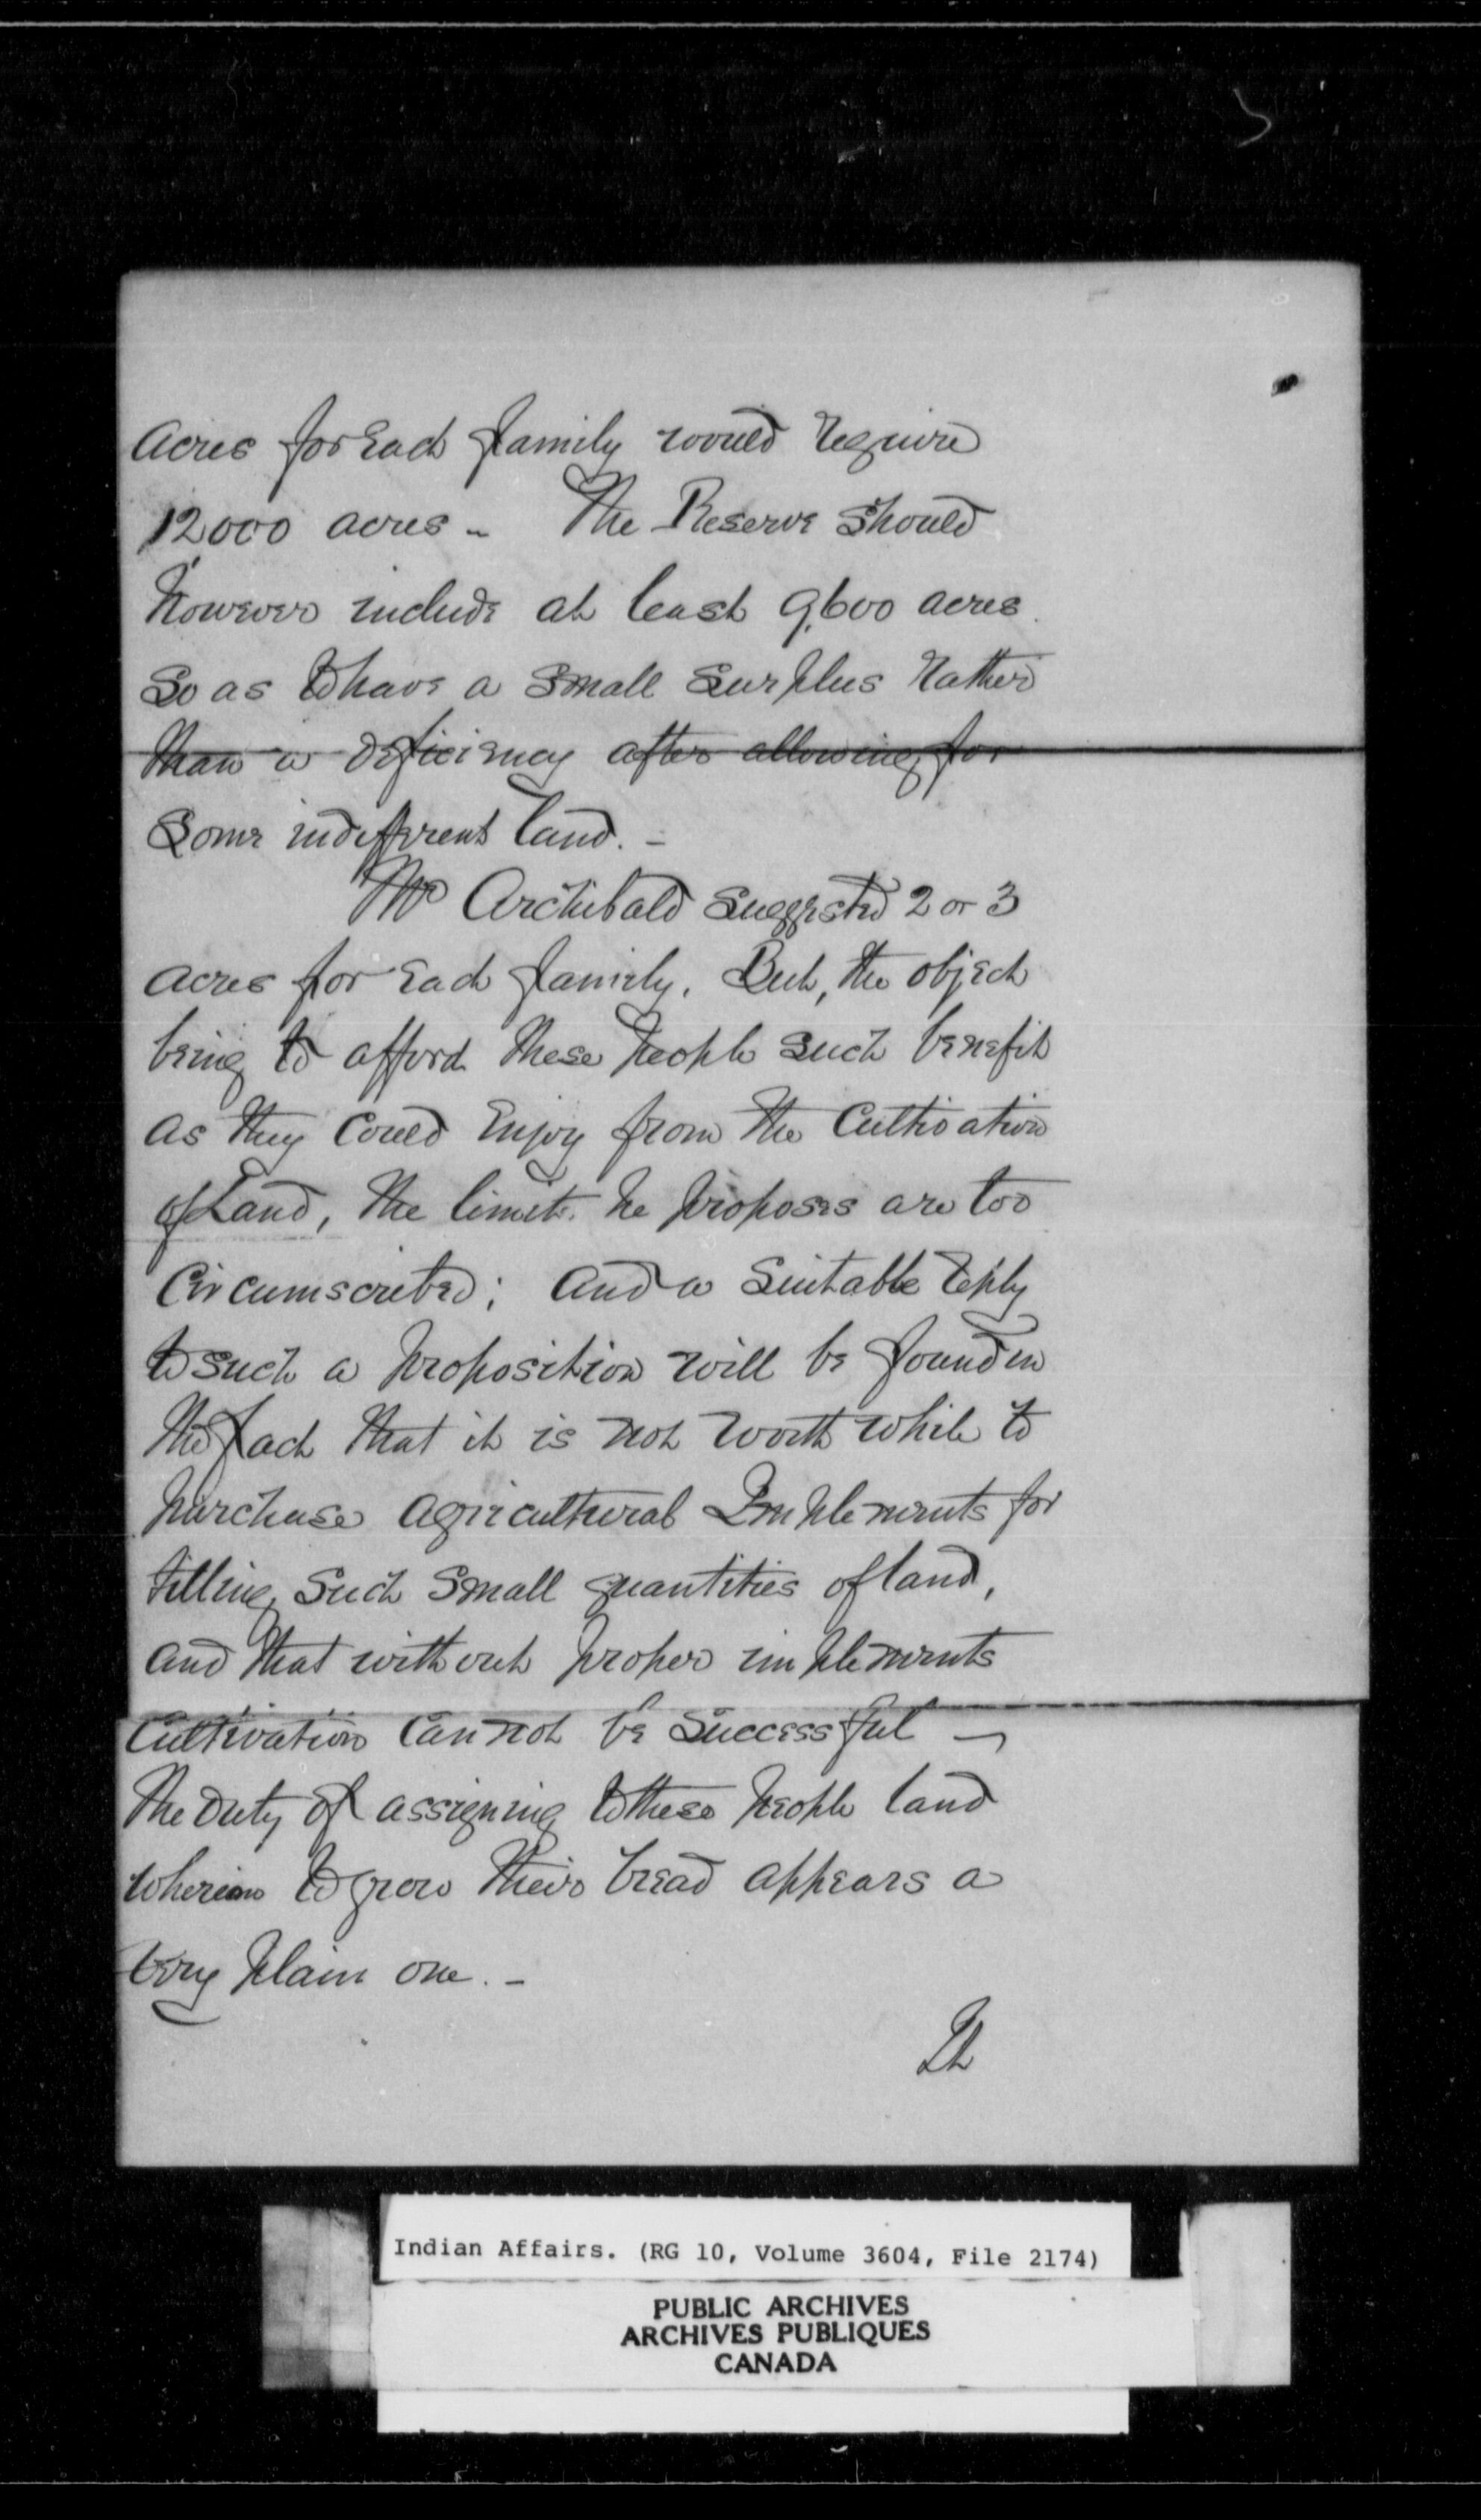 acres for each family would require
12000 acres - The Reserve should
however include at least 9,600 acres
so as to have a small surplus rather
than a deficiency after allowing for
some indifferent land. -
Mr Archibald suggested 2 or 3
acres for each family. But, the object
being to afford these people such benefit
as they could enjoy from the cultivation
of Land, the limits he proposes are too
circumscribed; and a suitable reply
to such a proposition will be found in
the fact that it is not worth while to
purchase agricultural Implements for
tilling such small quantities of land,
and that without proper implements
cultivation cannot be successful -
The duty of assigning to these people land
wherein to grow their bread appears a
very plain one. -
It
Indian Affairs. (RG 10, Volume 3604, File 2174)
PUBLIC ARCHIVES
ARCHIVES PUBLIQUES
CANADA